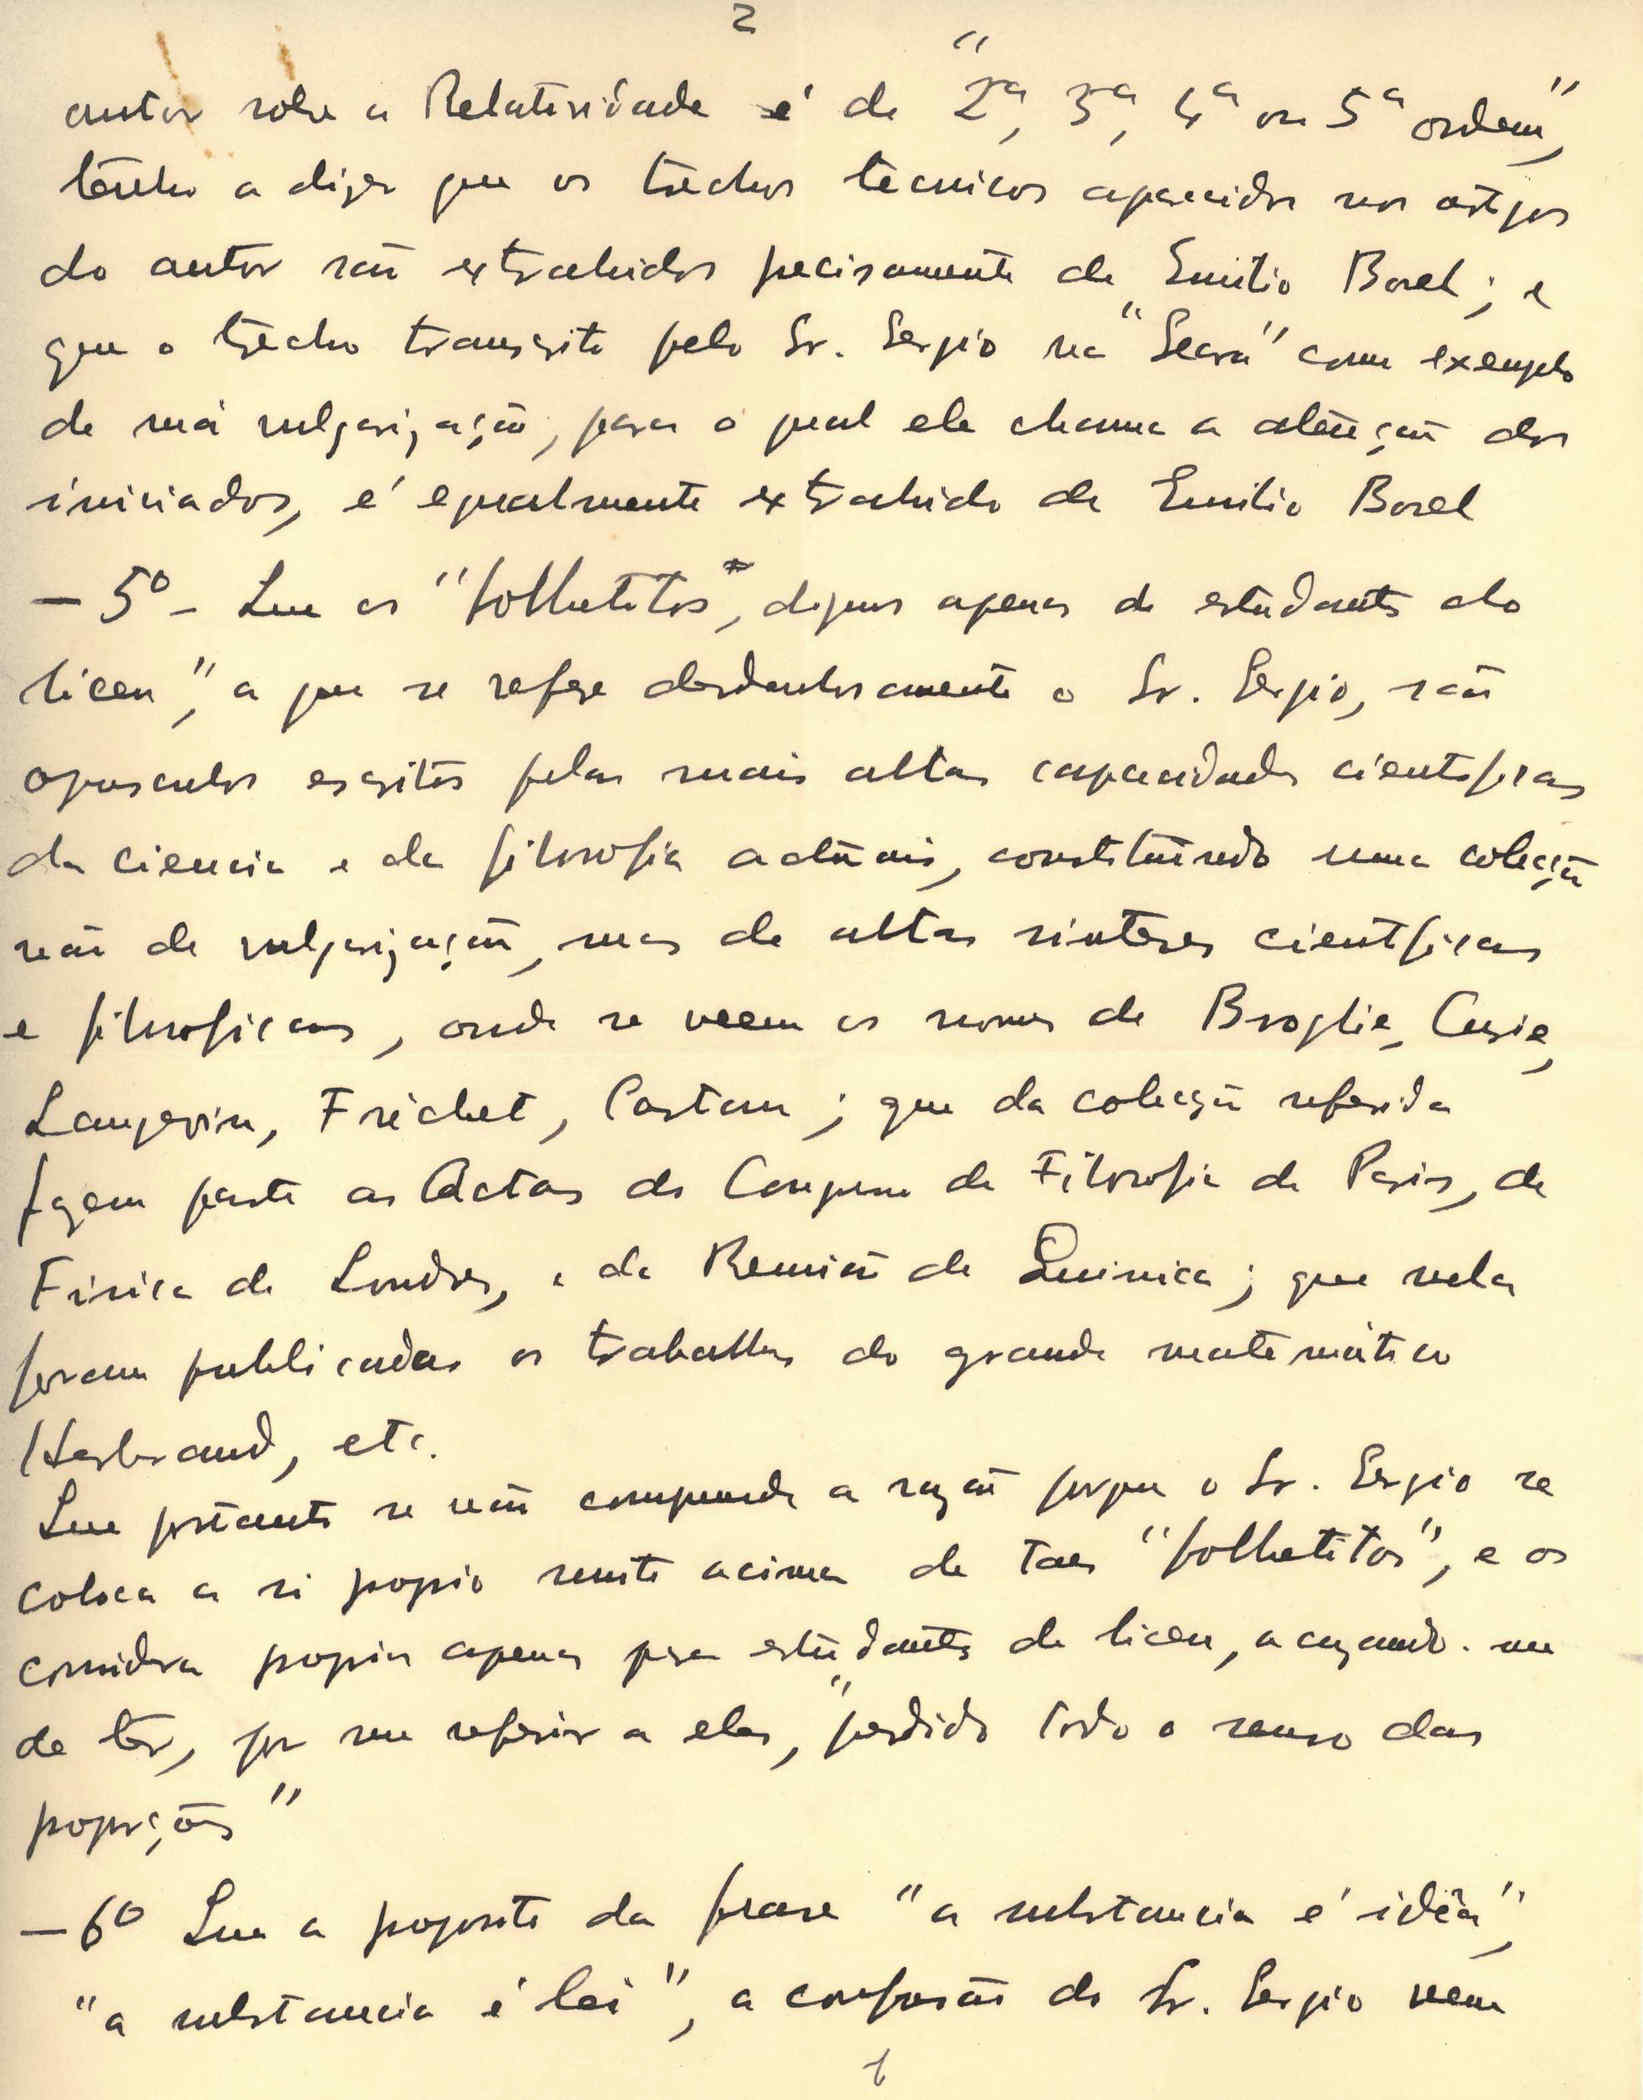 2
autor sobre a Relatividade é de "2ª, 3ª, 4ª ou 5ª ordem",
tenho a dizer que os trechos tecnicos aparecidos nos artigos
do autor são extrahidos precisamente de Emilio Borel; e
que o trecho transcrito pelo Sr. Sergio na "Seara" como exemplo
de má vulgarização, para o qual ele chama a atenção dos
iniciados, é egualmente extrahido de Emilio Borel
— 5º – Que os "folhetitos, dignos apenas de estudantes do
liceu", a que se refere desdenhosamente o Sr. Sergio, são
opusculos escritos pelas mais altas capacidades cientificas
da ciencia e da filosofia actuais, constituindo uma coleção
não de vulgarização, mas de altas sinteses cientificas
e filosoficas, onde se veem os nomes de Broglie, Curie,
Langevin, Fréchet, Cartan; que da coleção referida
fazem parte as Actas do Congresso de Filosofia de Paris, de
Fisica de Londres, e da Reunião de Quimica; que nela
foram publicadas os trabalhos do grande matemático
Herbrand, etc.
Que portanto se não compreende a razão porque o Sr. Sergio se
coloca a si proprio muito acima de taes "folhetitos", e os
considera proprios apenas para estudantes de liceu, acusando-me
de ter, por me referir a eles, "perdido todo o senso das
proporções"
— 6º Que a proposito da frase "a substancia é idêa",
"a substancia é lei", a confusão do Sr. Sergio vem